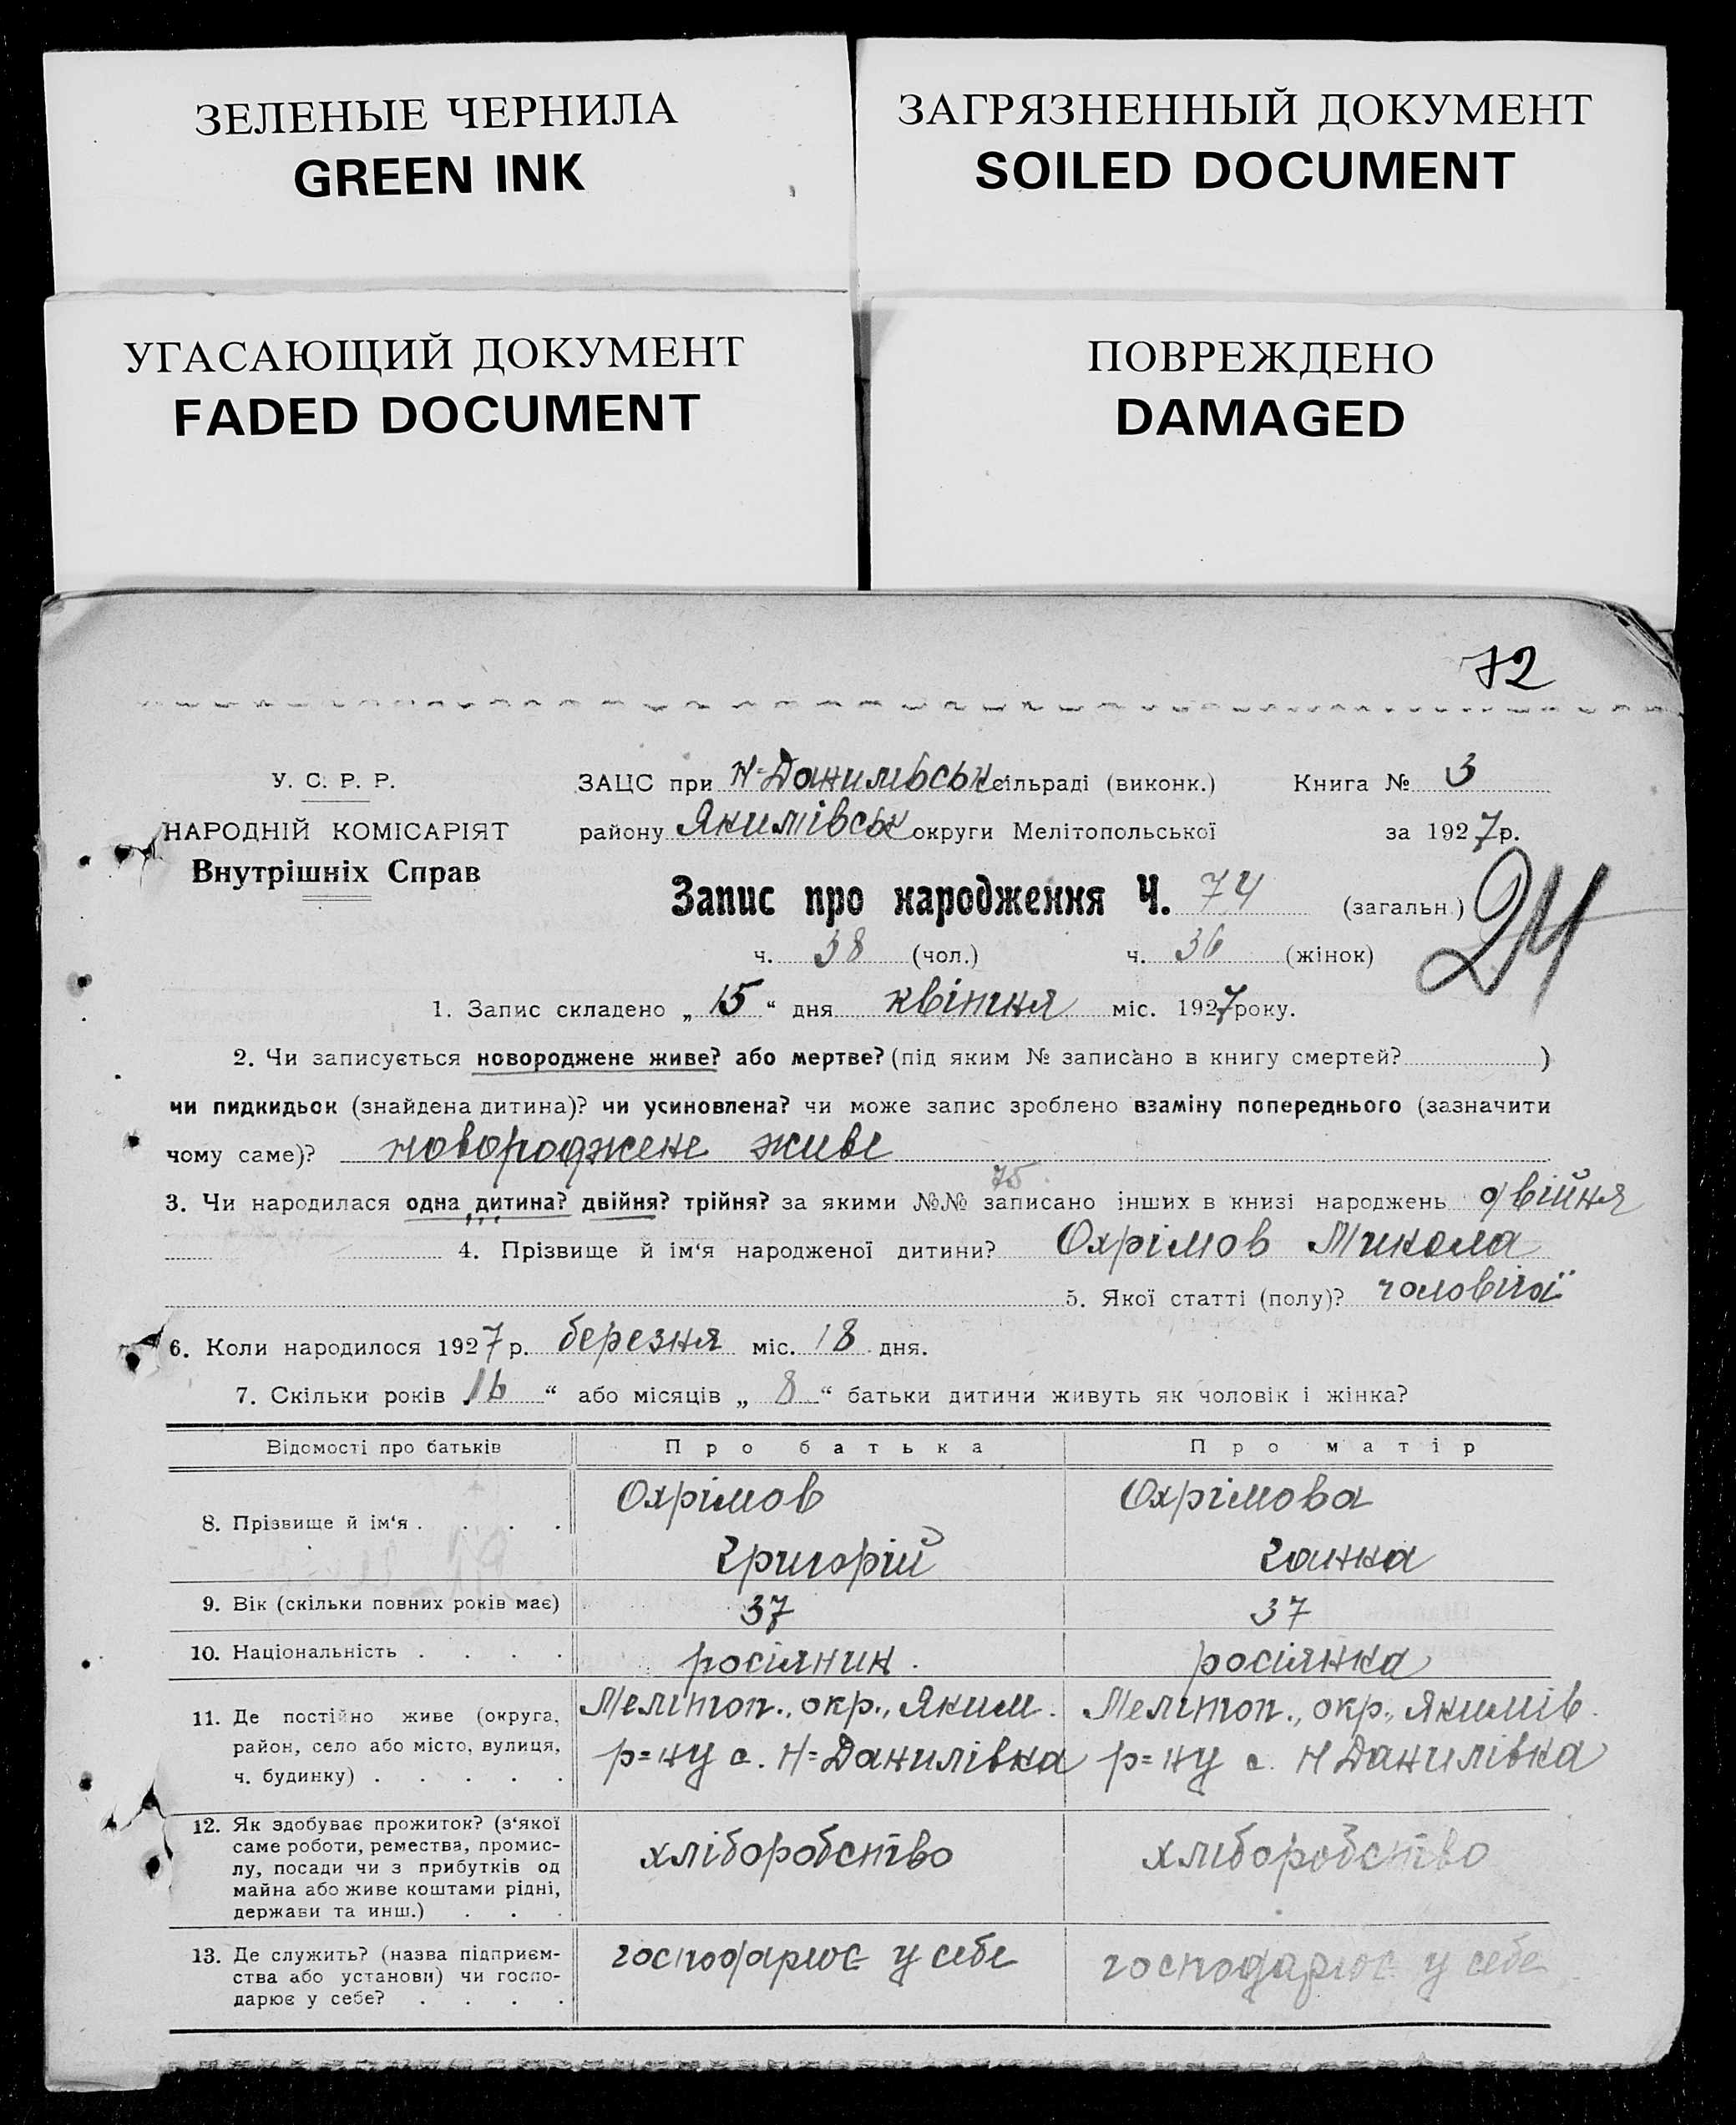 ЗЕЛЕНЫЕ ЧЕРНИЛА
GREEN INK
ЗАГРЯЗНЕННЫЙ ДОКУМЕНТ
SOILED DOCUMENT
УГАСАЮЩИЙ ДОКУМЕНТ
FADED DOCUMENT
ПОВРЕЖДЕНО
DAMAGED
72
У. С. Р. Р.
НАРОДНІЙ КОМІСАРІЯТ
Внутрішніх Справ
ЗАЦС при Н=Данилівськ сільраді (виконк.) Книга № 3
району Якимівськ округи Мелітопольської за 1927 р.
Запис про народження Ч. 74 (загальн.)
24
ч. 38 (чол.) ч. 36 (жінок)
1. Запис складено „ 15 “ дня квітня міс. 1927 року.
2. Чи записується новороджене живе? або мертве? (під яким № записано в книгу смертей? )
чи пидкидьок (знайдена дитина)? чи усиновлена? чи може запис зроблено взаміну попереднього (зазначити
чому саме)? новороджене живе
75
3. Чи народилася одна дитина? двійня? трійня? за якими №№ записано інших в книзі народжень двійня
4. Прізвище й ім‘я народженої дитини? Охрімов Микола
5. Якої статті (полу)? чоловічої
6. Коли народилося 1927 р. березня міс. 18 дня.
7. Скільки років 16 “ або місяців „ 8 “ батьки дитини живуть як чоловік і жінка?
Відомості про батьків Про батька Про матір
8. Прізвище й ім‘я . . . . Охрімов Григорій Охрімова Ганна
9. Вік (скільки повних років має) 37 37
10. Національність . . . . росіяник . росіянка
11. Де постійно живе (округа, район, село або місто, вулиця, ч. будинку) . . . . . Мелітоп., окр., Яким. р=ну с. Н=Данилівка Мелітоп., окр., Якимів. р=ну с. Н Данилівка
12. Як здобуває прожиток? (з‘якої саме роботи, ремества, промислу, посади чи з прибутків од майна або живе коштами рідні, держави та инш.) . . . хліборобство хліборобство
13. Де служить? (назва підприємства або установи) чи господарює у себе? . . . . господарює у себе господарює у себе